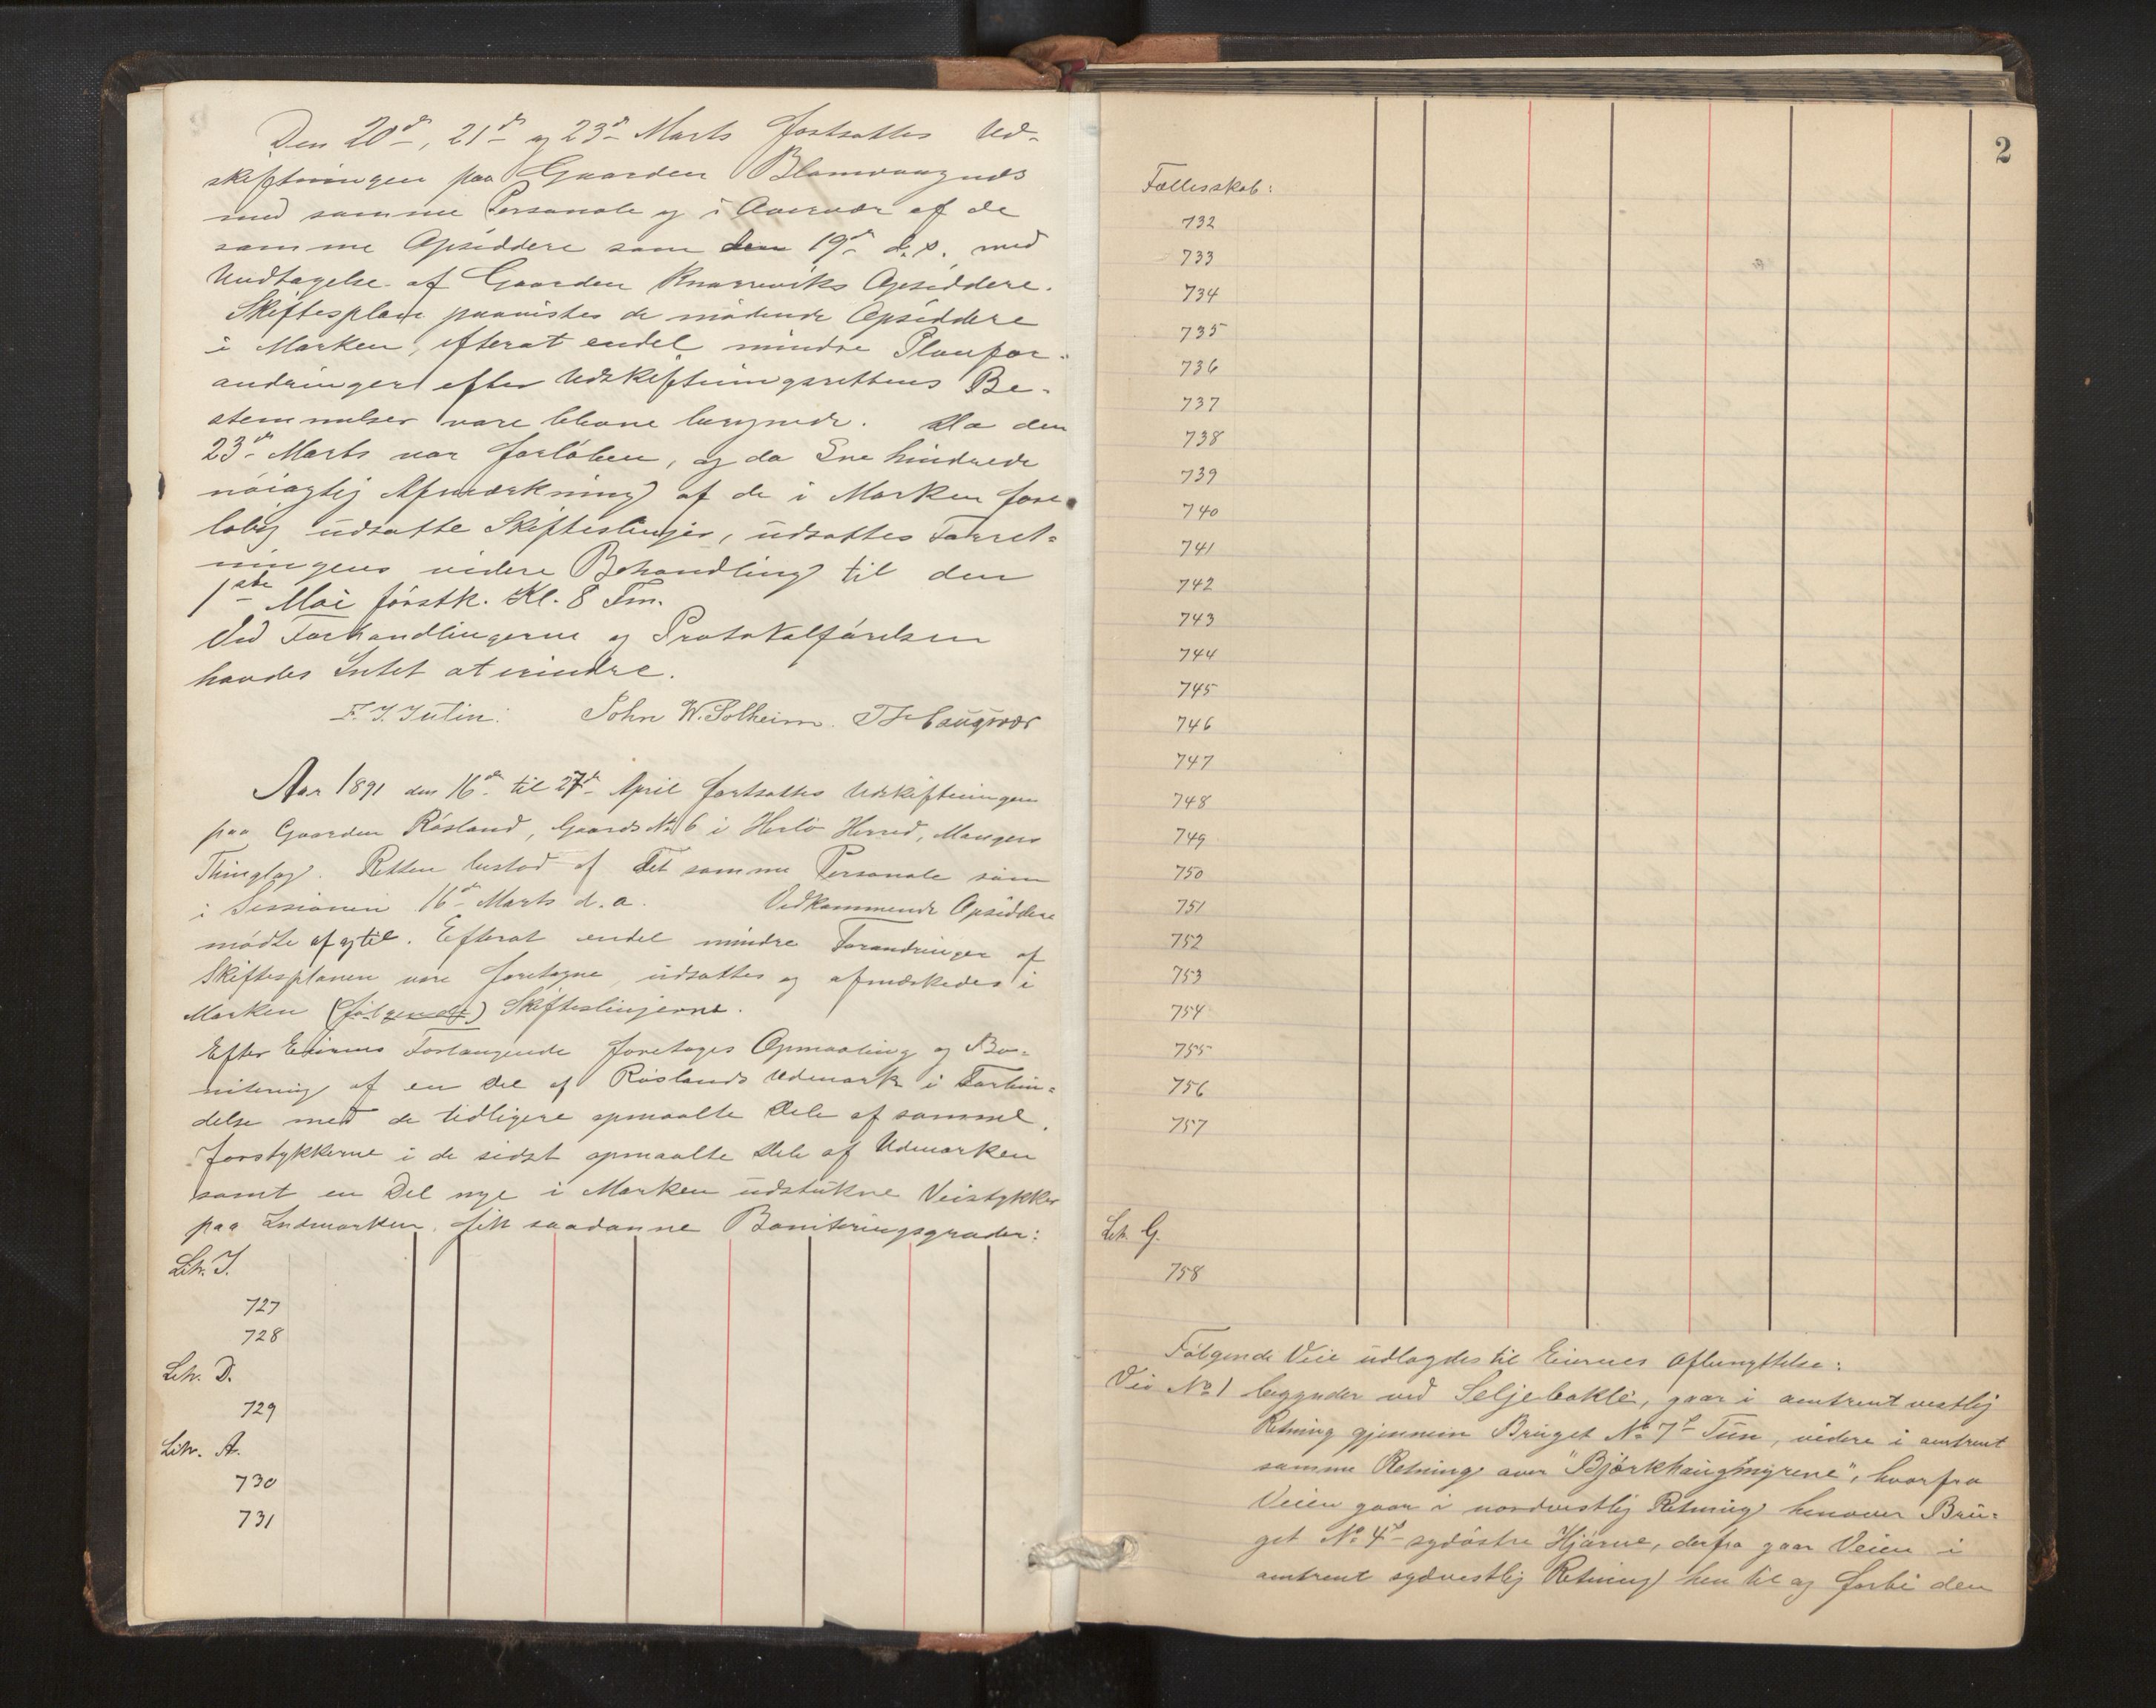 Den 20de, 21de og 23de Marts fortsattes Ud-
skiftningen paa Gaarden Blomvaagnæs
med samme Personale og i Overvær af de
samme Opsiddere som den 19de d. s. med
Undtagelse af Gaarden Knarreviks Opsiddere.
Skiftesplan paavistes de mødende Opsiddere
i Marken, efterat endel mindre Planfor-
andringer efter Udskiftningsrettens Be-
stemmelser vare blevne besørgede. Da den
23de Marts var forløben, og da Sne hindrede
nøiagtig Afmærkning af de i Marken fore-
løbig udsatte Skifteslinjer, udsattes Forret-
ningens videre Behandling til den
1ste Mai førstk. Kl. 8 Fm.
Ved Forhandlingerne og Protokolførelsen
havdes Intet at erindre.
F. J. Julin. John W. Solheim.
Aar 1891 den 16de til 27de April fortsattes Udskiftningen
paa Gaarden Røsland, Gaards No 6 i Herlø Herred, Mangers
Thinglag. Retten bestod af det samme Personale som
i Sessionen 16de Marts d. a. Vedkommende Opsiddere
mødte af og til. Efterat endel mindre Forandringer af
Skiftesplanen vare foretagne, udsattes og afmærkedes i
Marken (følgende) Skifteslinjerne.
Efter Eiernes Forlangende foretoges Opmaaling og Bo-
nitering af en Del af Røslands Udmark i Forbin-
delse med de tidligere opmaalte Dele af samme.
Jorstykkerne i de sidst opmaalte Dele af Udmarken
samt en Del nye i Marken udstukne Veistykker
paa Indmarken fik saadanne Boniteringsgrader:
Litr. J.
727
728
Litr. D.
729
Litr. A.
730
731
2
Fællesskab:
732
733
734
735
736
737
738
739
740
741
742
743
744
745
746
747
748
749
750
751
752
753
754
755
756
757
Litr. G.
758
Følgende Veie udlagdes til Eiernes Afbenyttelse:
Vei No 1 begynder ved Seljebakke, gaar i omtrent vestlig
Retning gjennem Bruget No 7s Tun, videre i omtrent
samme Retning over "Bjørkhaugmyrene", hvorfra
Veien gaar i nordvestlig Retning henover Bru-
get No 4s sydøstre Hjørne, derfra gaar Veien i
omtrent sydvestlig Retning hen til og forbi den